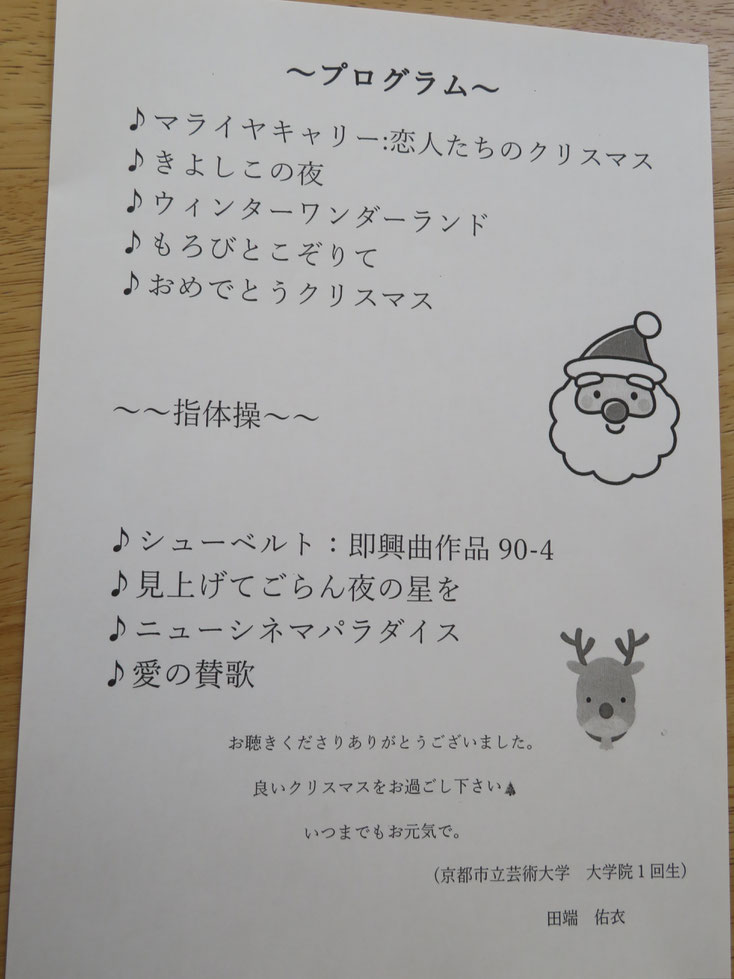 ～プログラム～
♪マライヤキャリー:恋人たちのクリスマス
♪きよしこの夜
♪ウィンターワンダーランド
♪もろびとこぞりて
♪おめでとうクリスマス
～～指体操～～
♪シューベルト：即興曲作品 90-4
♪見上げてごらん夜の星を
♪ニューシネマパラダイス
♪愛の賛歌
お聴きくださりありがとうございました。
良いクリスマスをお過ごし下さい🎄
いつまでもお元気で。
（京都市立芸術大学　大学院１回生）
田端　佑衣